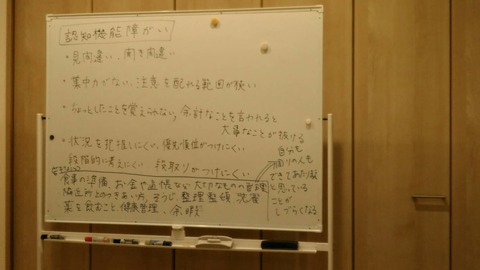 認知機能障がい
・見間違い、聞き間違い
・集中力がない、注意を配れる範囲が狭い
・ちょっとしたことを覚えられない、余計なことを言われると
大事なことが抜ける
・状況を把握しにくい、優先順位がつけにくい
段階的に考えにくい 段取りがつけにくい
食事の準備、お金や通帳など大切なものの管理
隣近所とのつきあい方、そうじ、整理整頓、洗濯
薬を飲むこと、健康管理、余暇
自分も
周りの人も
できてあたり前
と思っている
ことが
しづらくなる